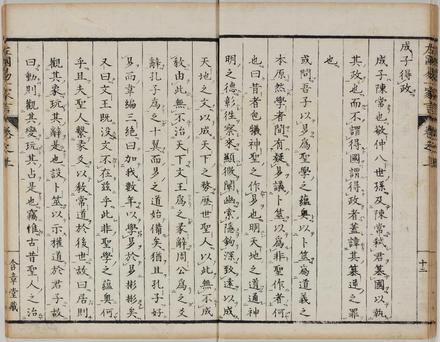 十二
成子得政
成子陳常也敬仲八世孫及陳常弑君簒國以執
其政也而不謂得國謂得政者蓋諱其簒逆之罪
也
或問吾子以易爲聖學之蘊奥以卜筮爲道義之
本原然學者間有疑易議卜筮以爲非聖作者何
也曰昔者包犧神聖之作易也明天地之道通神
明之德彰往察來顯微闡幽索隱鉤深致遠以成
天地之文以成天下之勢歷世聖人以此無不成
敎由此無不治天下文王爲之彖辭周公爲之爻
辭孔子爲之十翼而易之道始備矣猶且孔子好
易而韋編三絶曰加我數年以學易於易彬彬矣
又曰文王既没文不在茲乎此非聖學之蘊奥何
乎且夫聖人繫彖爻以敎常道於後世故曰居則
觀其象玩其辭是也設卜筮以示權道於君子故
曰動則觀其變玩其占是也竊惟古昔聖人之治
左國易家言 卷之上
含章堂藏